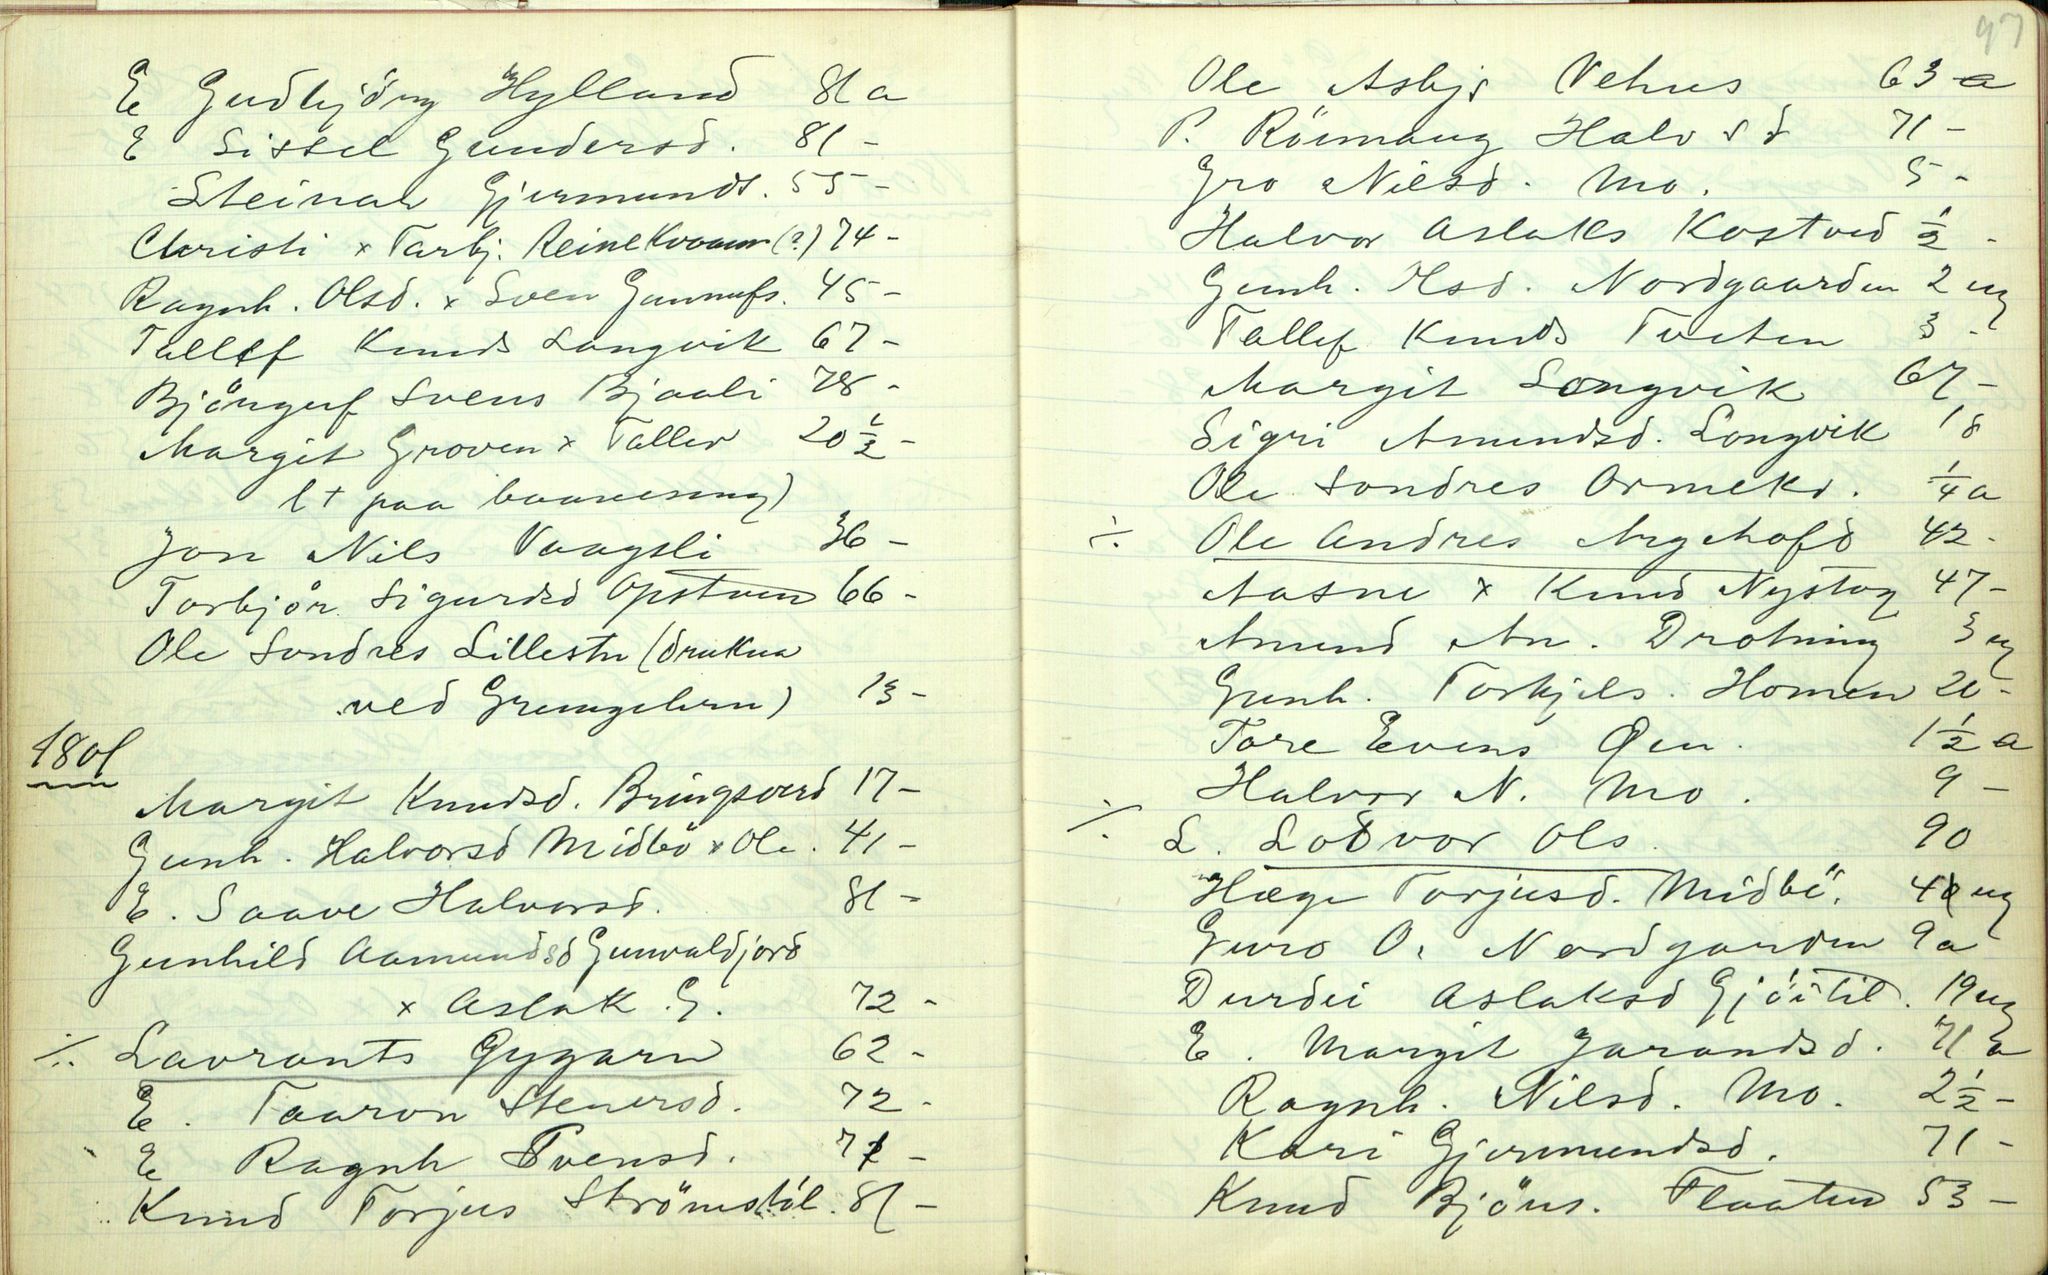 E Gudbjörg Hylland 81 a
E Sissel Gundersd. 81 -
Steinar Gjermunds. 55 -
Christi x Tarbj. Reinekvamm (?) 74 -
Ragnh. Olsd. x Sven Gunnufs. 45 -
Tallef Knuds Songvik 67 -
Bjönguf Svens Bjaali 78 -
Margit Groven x Tallev 20 1/2 -
(+ paa baarseng)
Jon Nils Vaagsli 36 -
Torbjör Sigurdsd Opstuen 66 -
Ole Sondres Lillestu (drukna
ved Grungebru) 13 -
1801
Margit Knudsd. Bringsverd 17 -
Gunh. Halvorsd Midbö x Ole. 41 -
E. Saave Halvorsd. 81 -
Gunhild Aamundsd Gunvaldjord
x Aslak G. 72 -
./. Lavrants Gygarn 62 -
E. Taaron Steinersd. 72 -
E Ragnh Svensd. 71 -
Knud Torjus Strömstöl. 81 -
97
Ole Asbjs Vehus 63 a
P. Röimaug Halvsd 71 -
Gro Nilsd. Mo. 5 -
Halvor Aslaks Kostved 1/2 -
Gunh. Olsd. Nordgaarden 2 ug
Tallef Knuds Tveten 3 -
Margit Songvik 67 -
Sigri Amundsd. Songvik 18
Ole Sondres Ormeks. 1/4 a
./. Ole Andres Argehofd 42 -
Aasne x Knud Nystog 47 -
Amund An. Drotning 3 ug
Gunh. Torkjels. Homen 20 -
Tore Evens Øen. 1 1/2 a
Halvor N. Mo. 9 -
./. L. Lodvor Ols. 90
Hæge Torjusd. Midbö. 40 ug
Guro O. Nordgarden 9 a
Durdei Aslaksd Gjöitil. 19 ug
E. Margit Jarandsd. 71 a
Ragnh. Nilsd. Mo. 2 1/2 -
Kari Gjermundsd. 71 -
Knud Bjöns. Flaaten 53 -